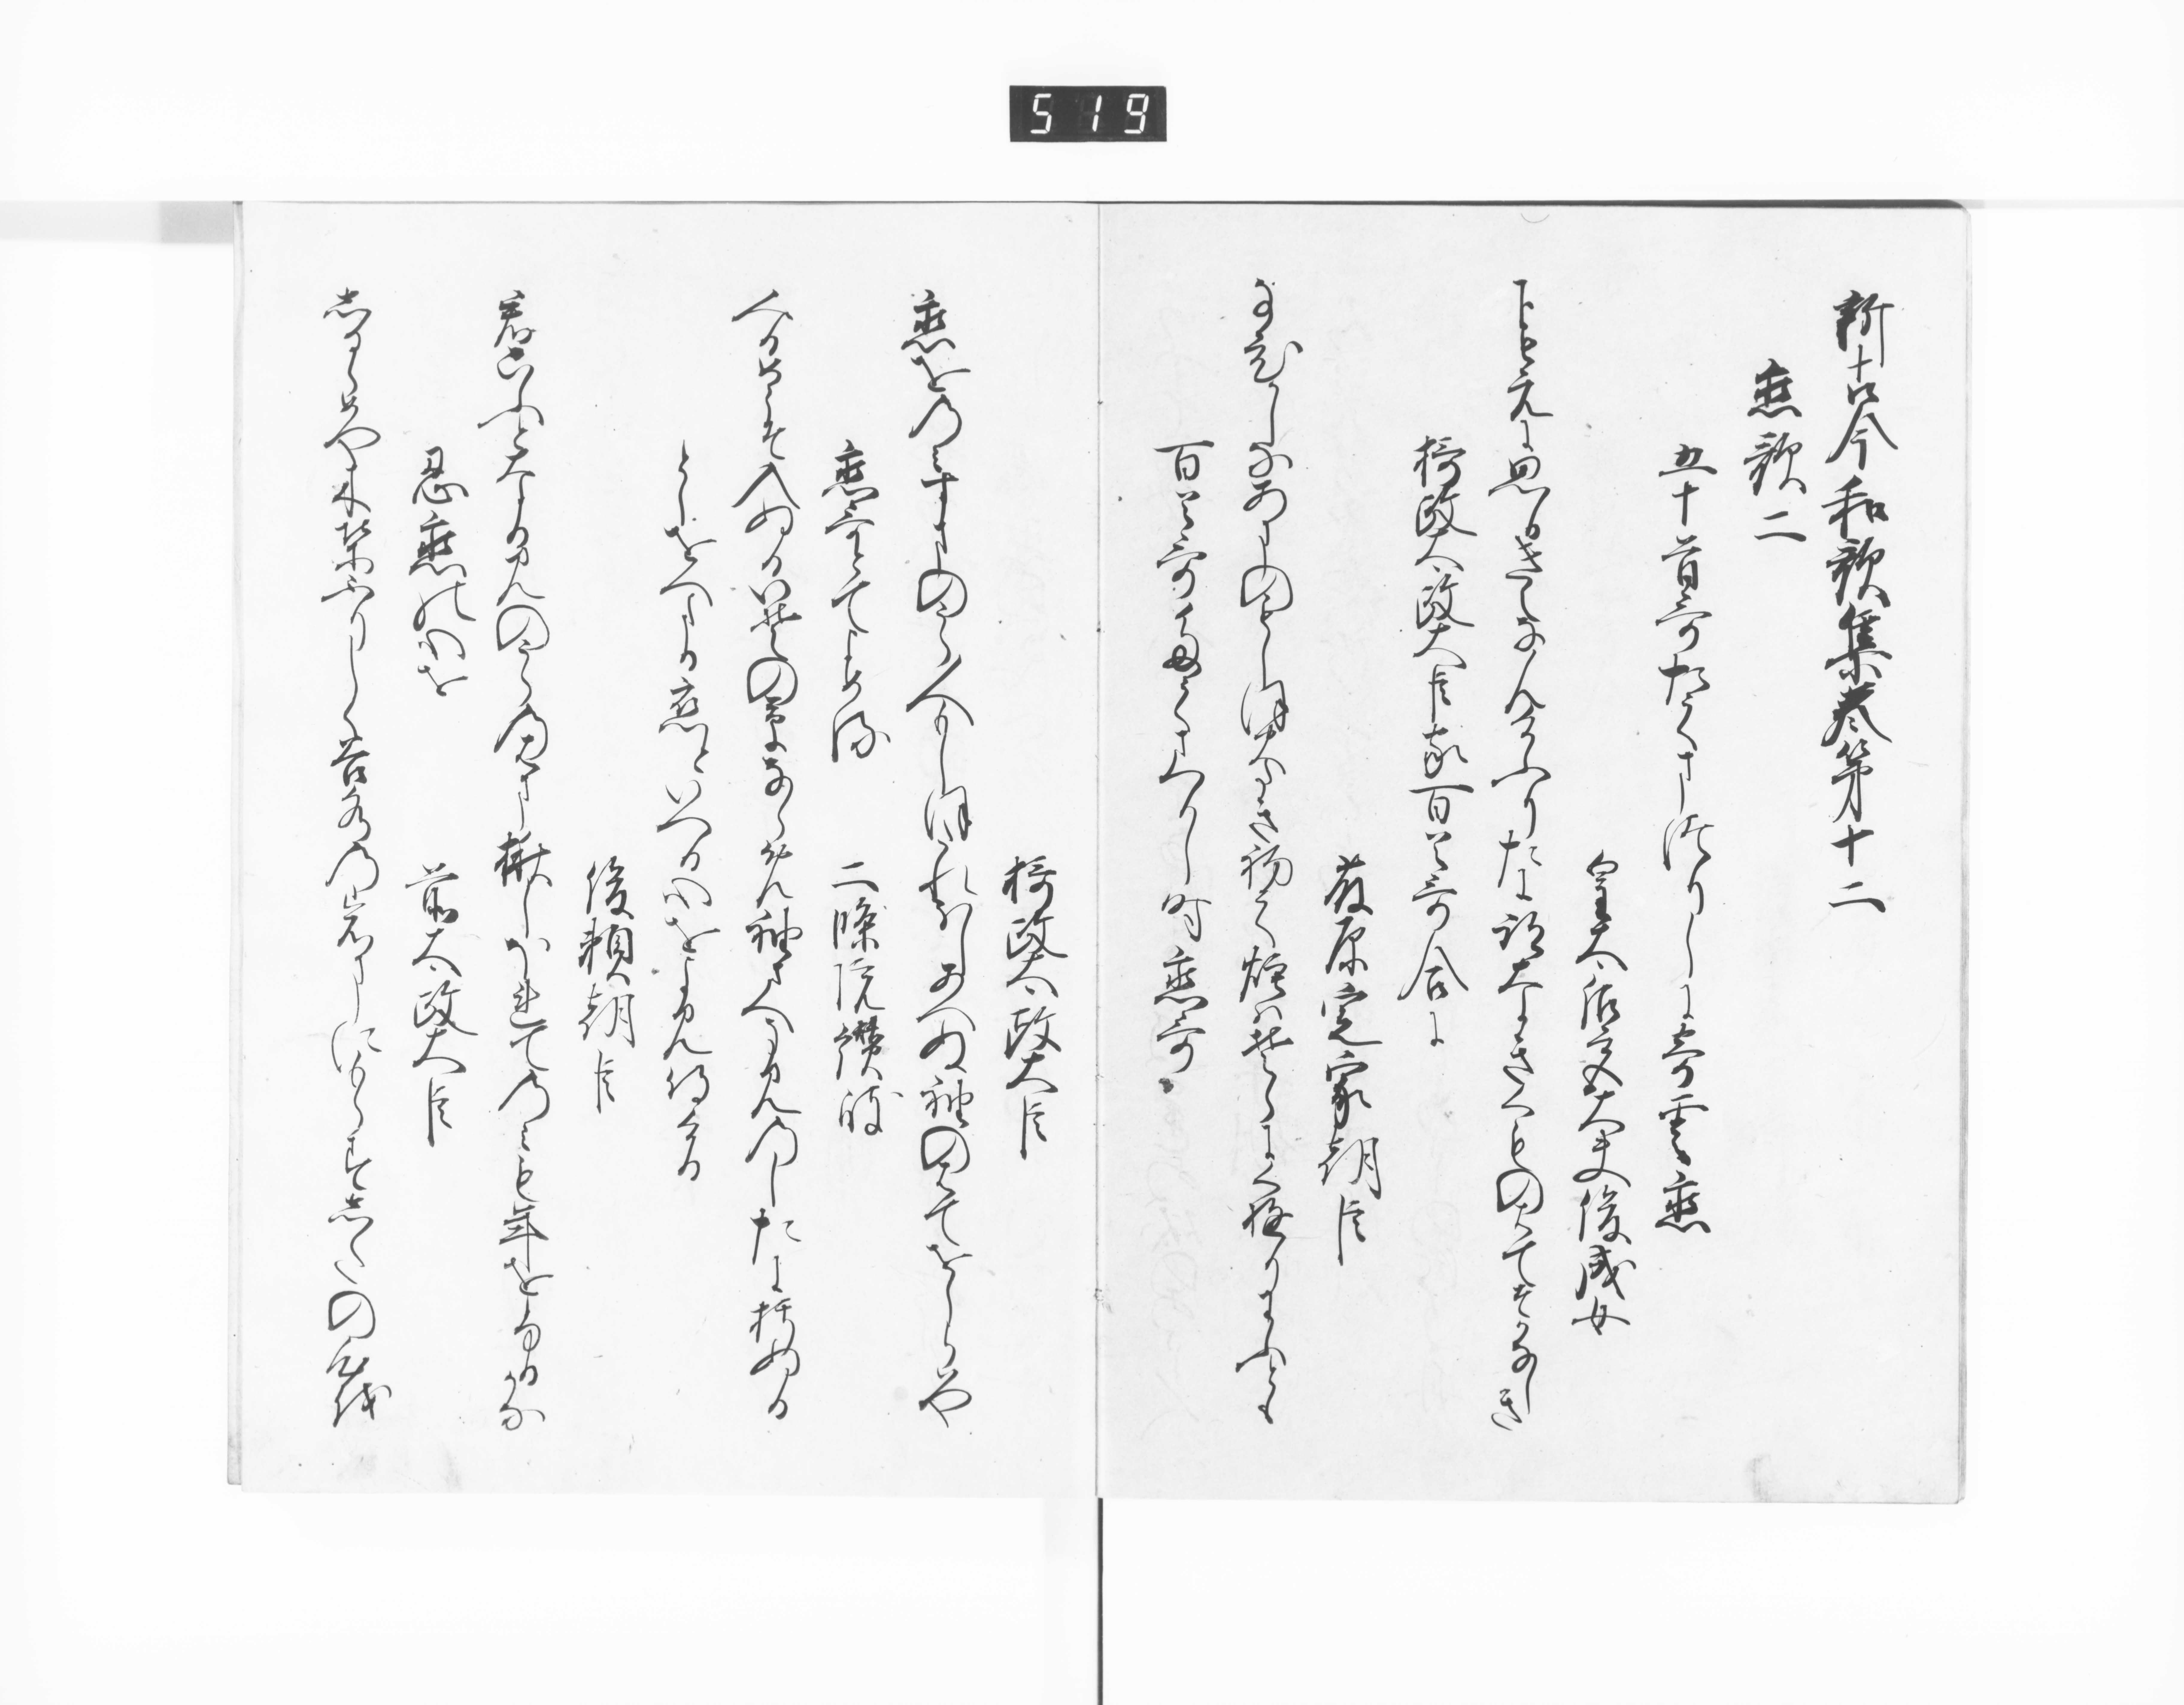 519
新古今和歌集巻第十二
恋歌二
五十首哥たてまつりしに寄雲恋
皇太后宮大夫俊成女
下もえに思ひきえなんけふりたに跡なき雲のはてそかなしき
摂政太政大臣家百首哥合に
藤原定家朝臣
なひかしなあまのもしほ火たき初て煙は空にくゆりわふとも
百首哥たてまつりし時恋哥
摂政太政大臣
恋をのみすまのうら人もしほたれほしあへぬ袖のはてをしらはや
恋哥とてよめる
二條院讃岐
みるめこそ入ぬるいその草ならめ袖さへなみのしたに朽ぬる
としをへたる恋といへる心をよみ侍ける
俊頼朝臣
君こふとなるみのうらのはま楸しほれてのみも年をふるかな
忍恋の心を
前太政大臣
しるらめや木葉ふりしく谷水の岩まにもらすしたの心を